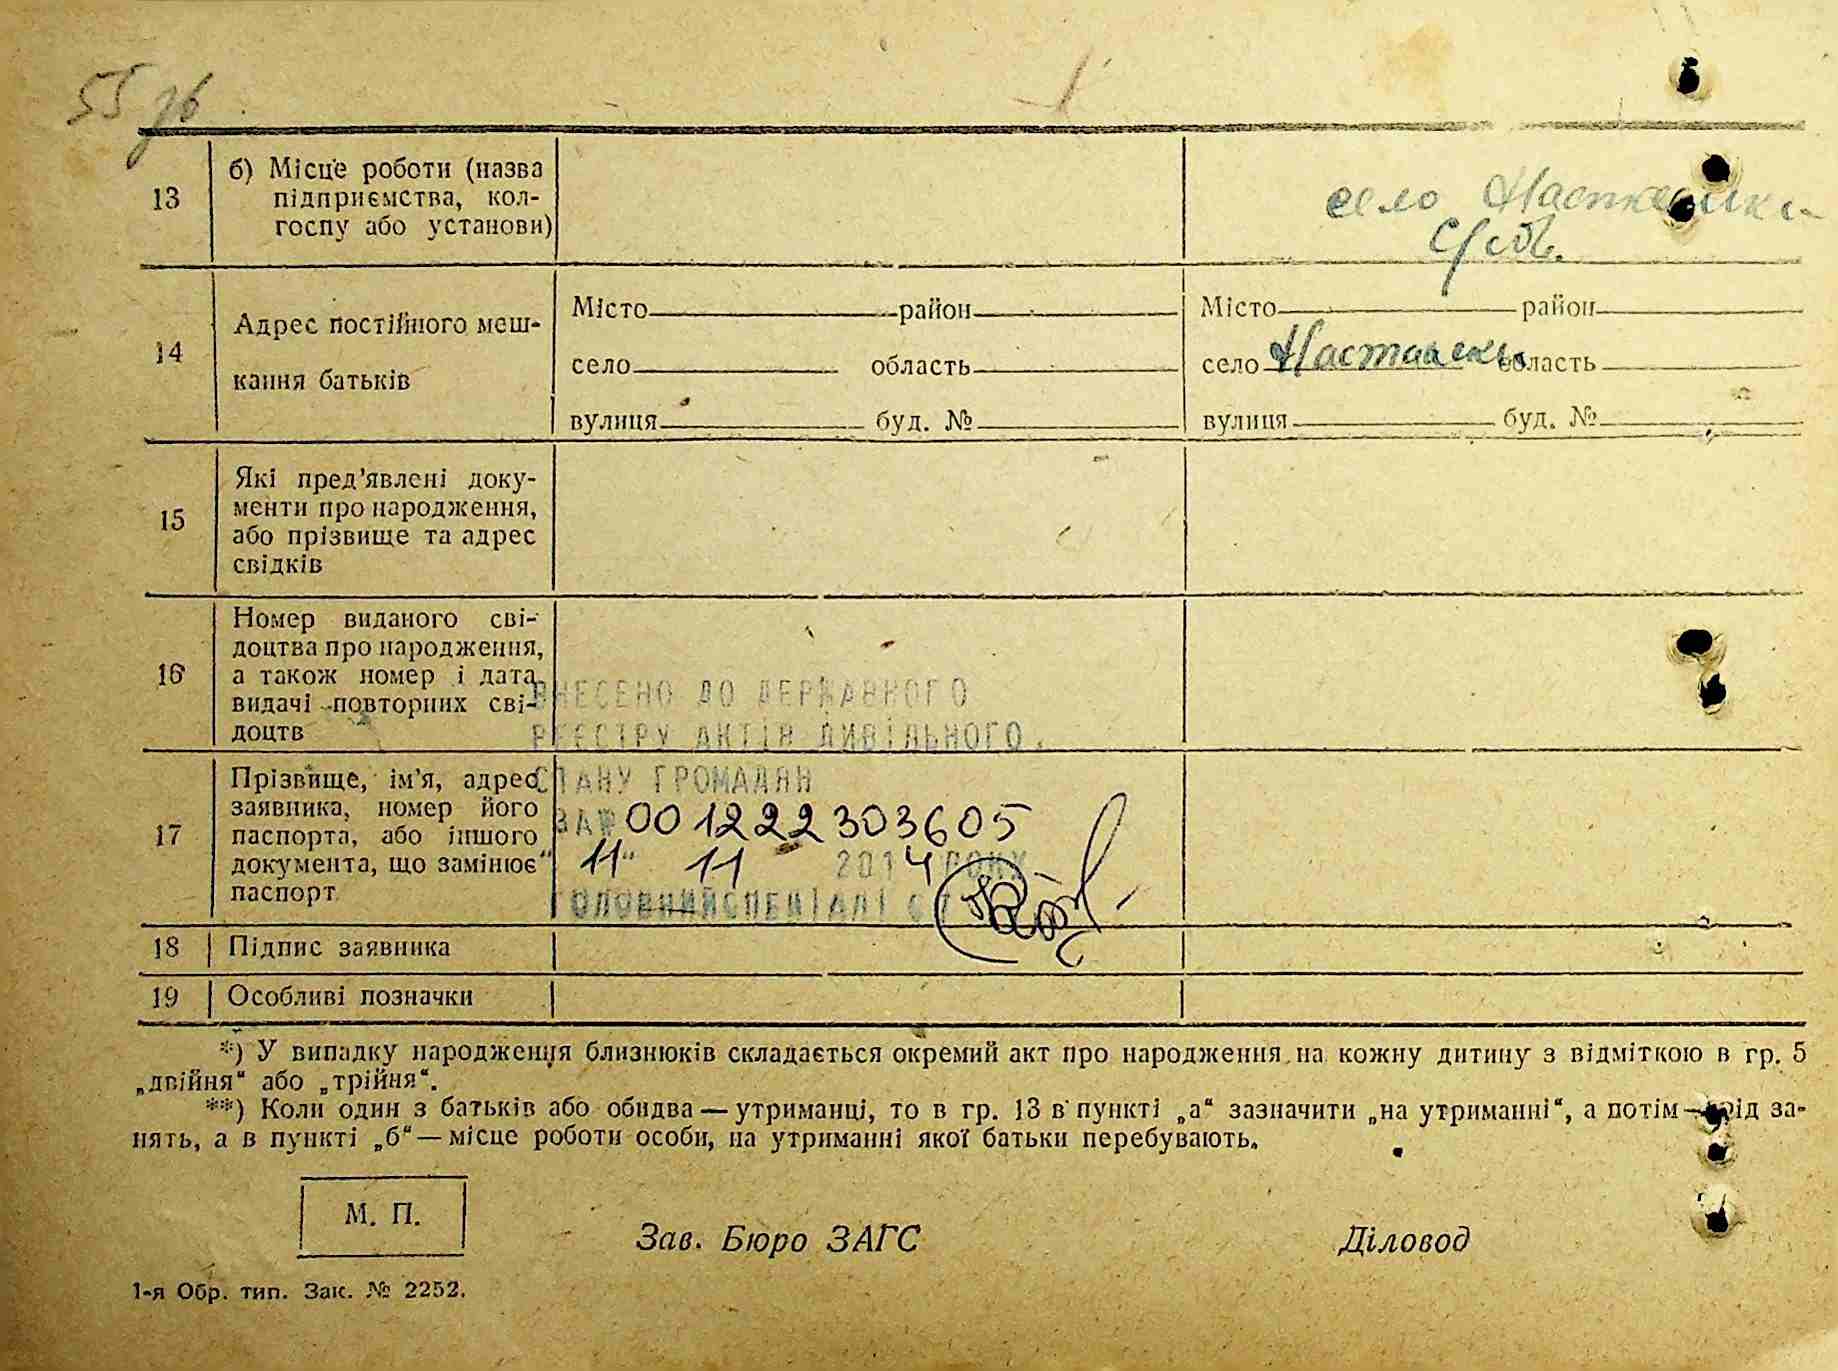 55 зв
13
б) Місце роботи (назва
підприємства, кол-
госпу або установи)
село
14
Адрес постійного меш-
кання батьків
Місто район
село область
вулиця буд. №
Місто район
село область
вулиця буд. №
15
Які пред'явлені доку-
менти про народження,
або прізвище та адрес
свідків
16
Номер виданого сві-
доцтва про народження,
а також номер і дата
видачі повторних сві-
доцтв
ВНЕСЕНО ДО ДЕРЖАВНОГО
РЕЄСТРУ АКТІВ ЦИВІЛЬНОГО
СТАНУ ГРОМАДЯН
ЗА № 001222303605
"11" 11 2014 РОКУ
ГОЛОВНИЙ СПЕЦІАЛІСТ
17
Прізвище, ім'я, адрес
заявника, номер його
паспорта, або іншого
документа, що замінює
паспорт
18 Підпис заявника
19 Особливі позначки
*) У випадку народження близнюків складається окремий акт про народження на кожну дитину з відміткою в гр. 5
„двійня“ або „трійня“.
**) Коли один з батьків або обидва — утриманці, то в гр. 13 в пункті „а“ зазначити „на утриманні“, а потім — рід за-
нять, а в пункті „б“ — місце роботи особи, на утриманні якої батьки перебувають.
М. П.
Зав. Бюро ЗАГС
Діловод
1-я Обр. тип. Зак. № 2252.